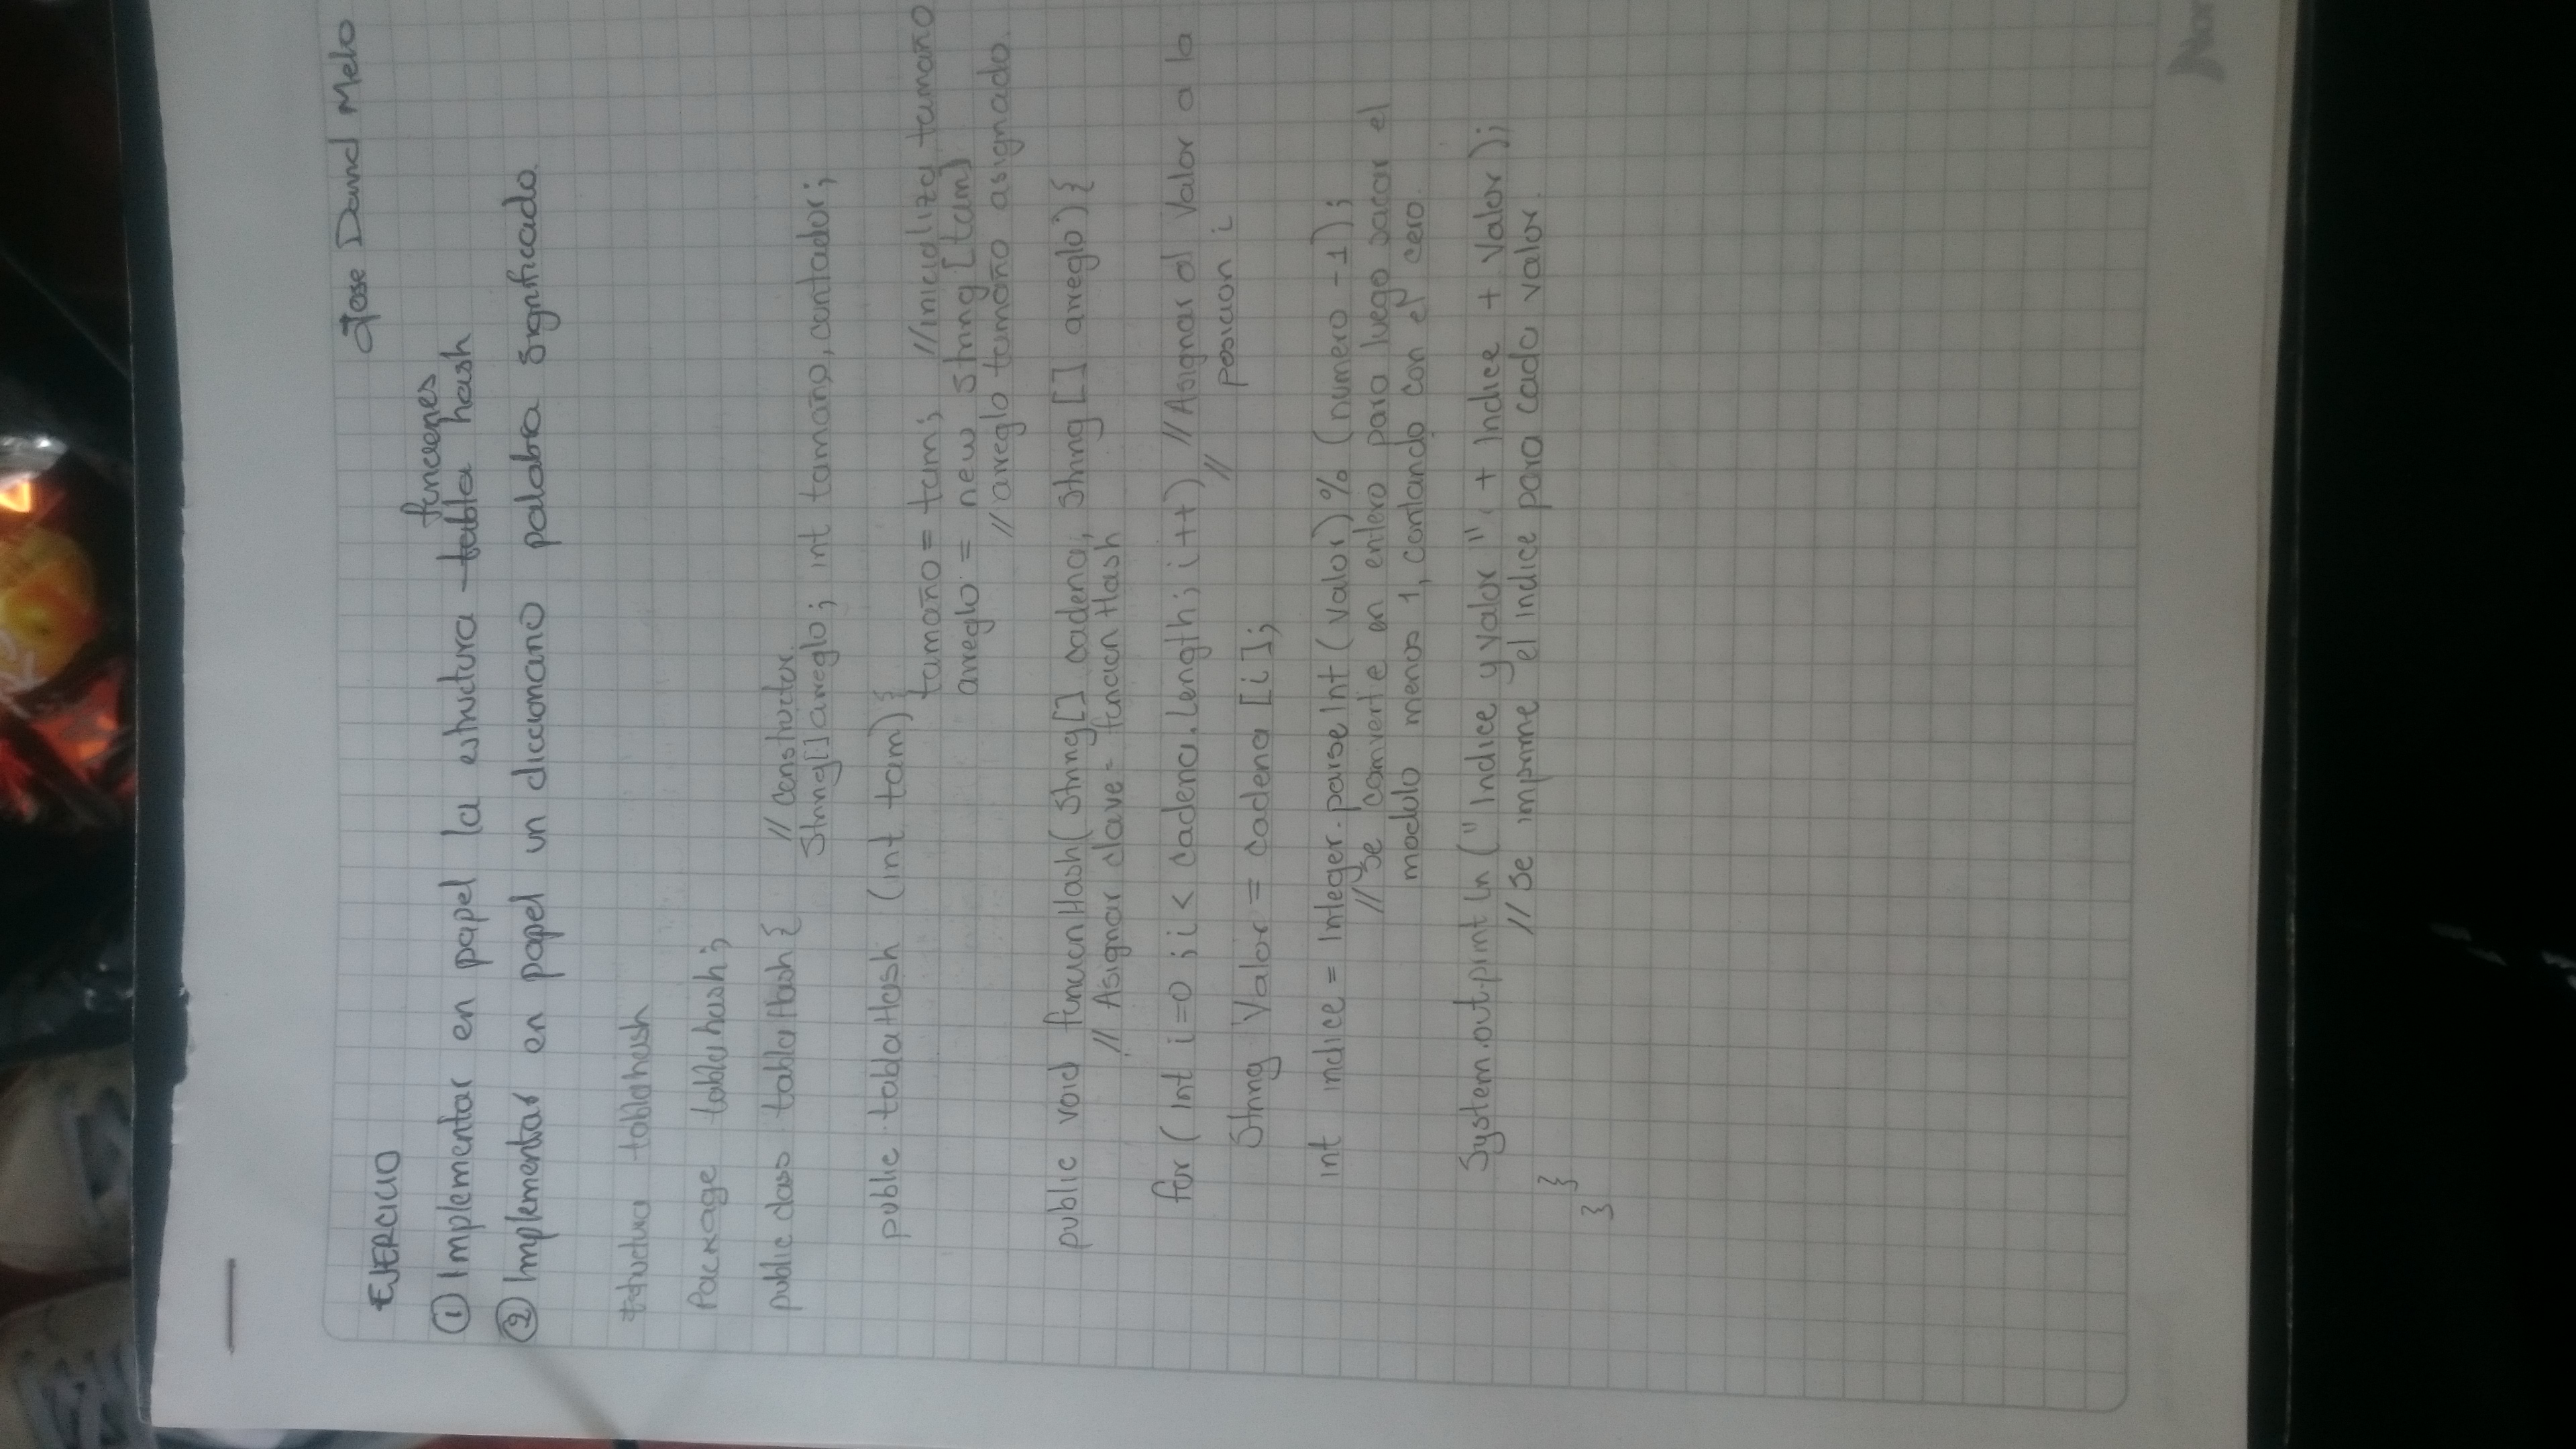 Jose David Melo
EJERCICIO
funciones
① Implementar en papel la estructura tabla hash
② Implementar en papel un diccionario palabra significado.
tablahash
Package tablahash;
public class tablaHash { // constructor.
String[] arreglo; int tamaño, contador;
public tablaHash (int tam) {
tamaño = tam; //inicializa tamaño
arreglo = new String [tam]
// arreglo tamaño asignado.
public void funcionHash( String[] cadena, String [] arreglo) {
// Asignar clave = funcion Hash
for ( int i=0 ; i < cadena.length; i++) // Asignar al valor a la
// posicion i
String Valor = cadena [i];
int indice = Integer.parseInt (valor) % (numero -1);
// se converte en entero para luego sacar el
modulo menos 1, contando con el cero.
System.out.println ("Indice y valor " + Indice + Valor );
// se imprime el indice para cada valor.
}
}
Nor